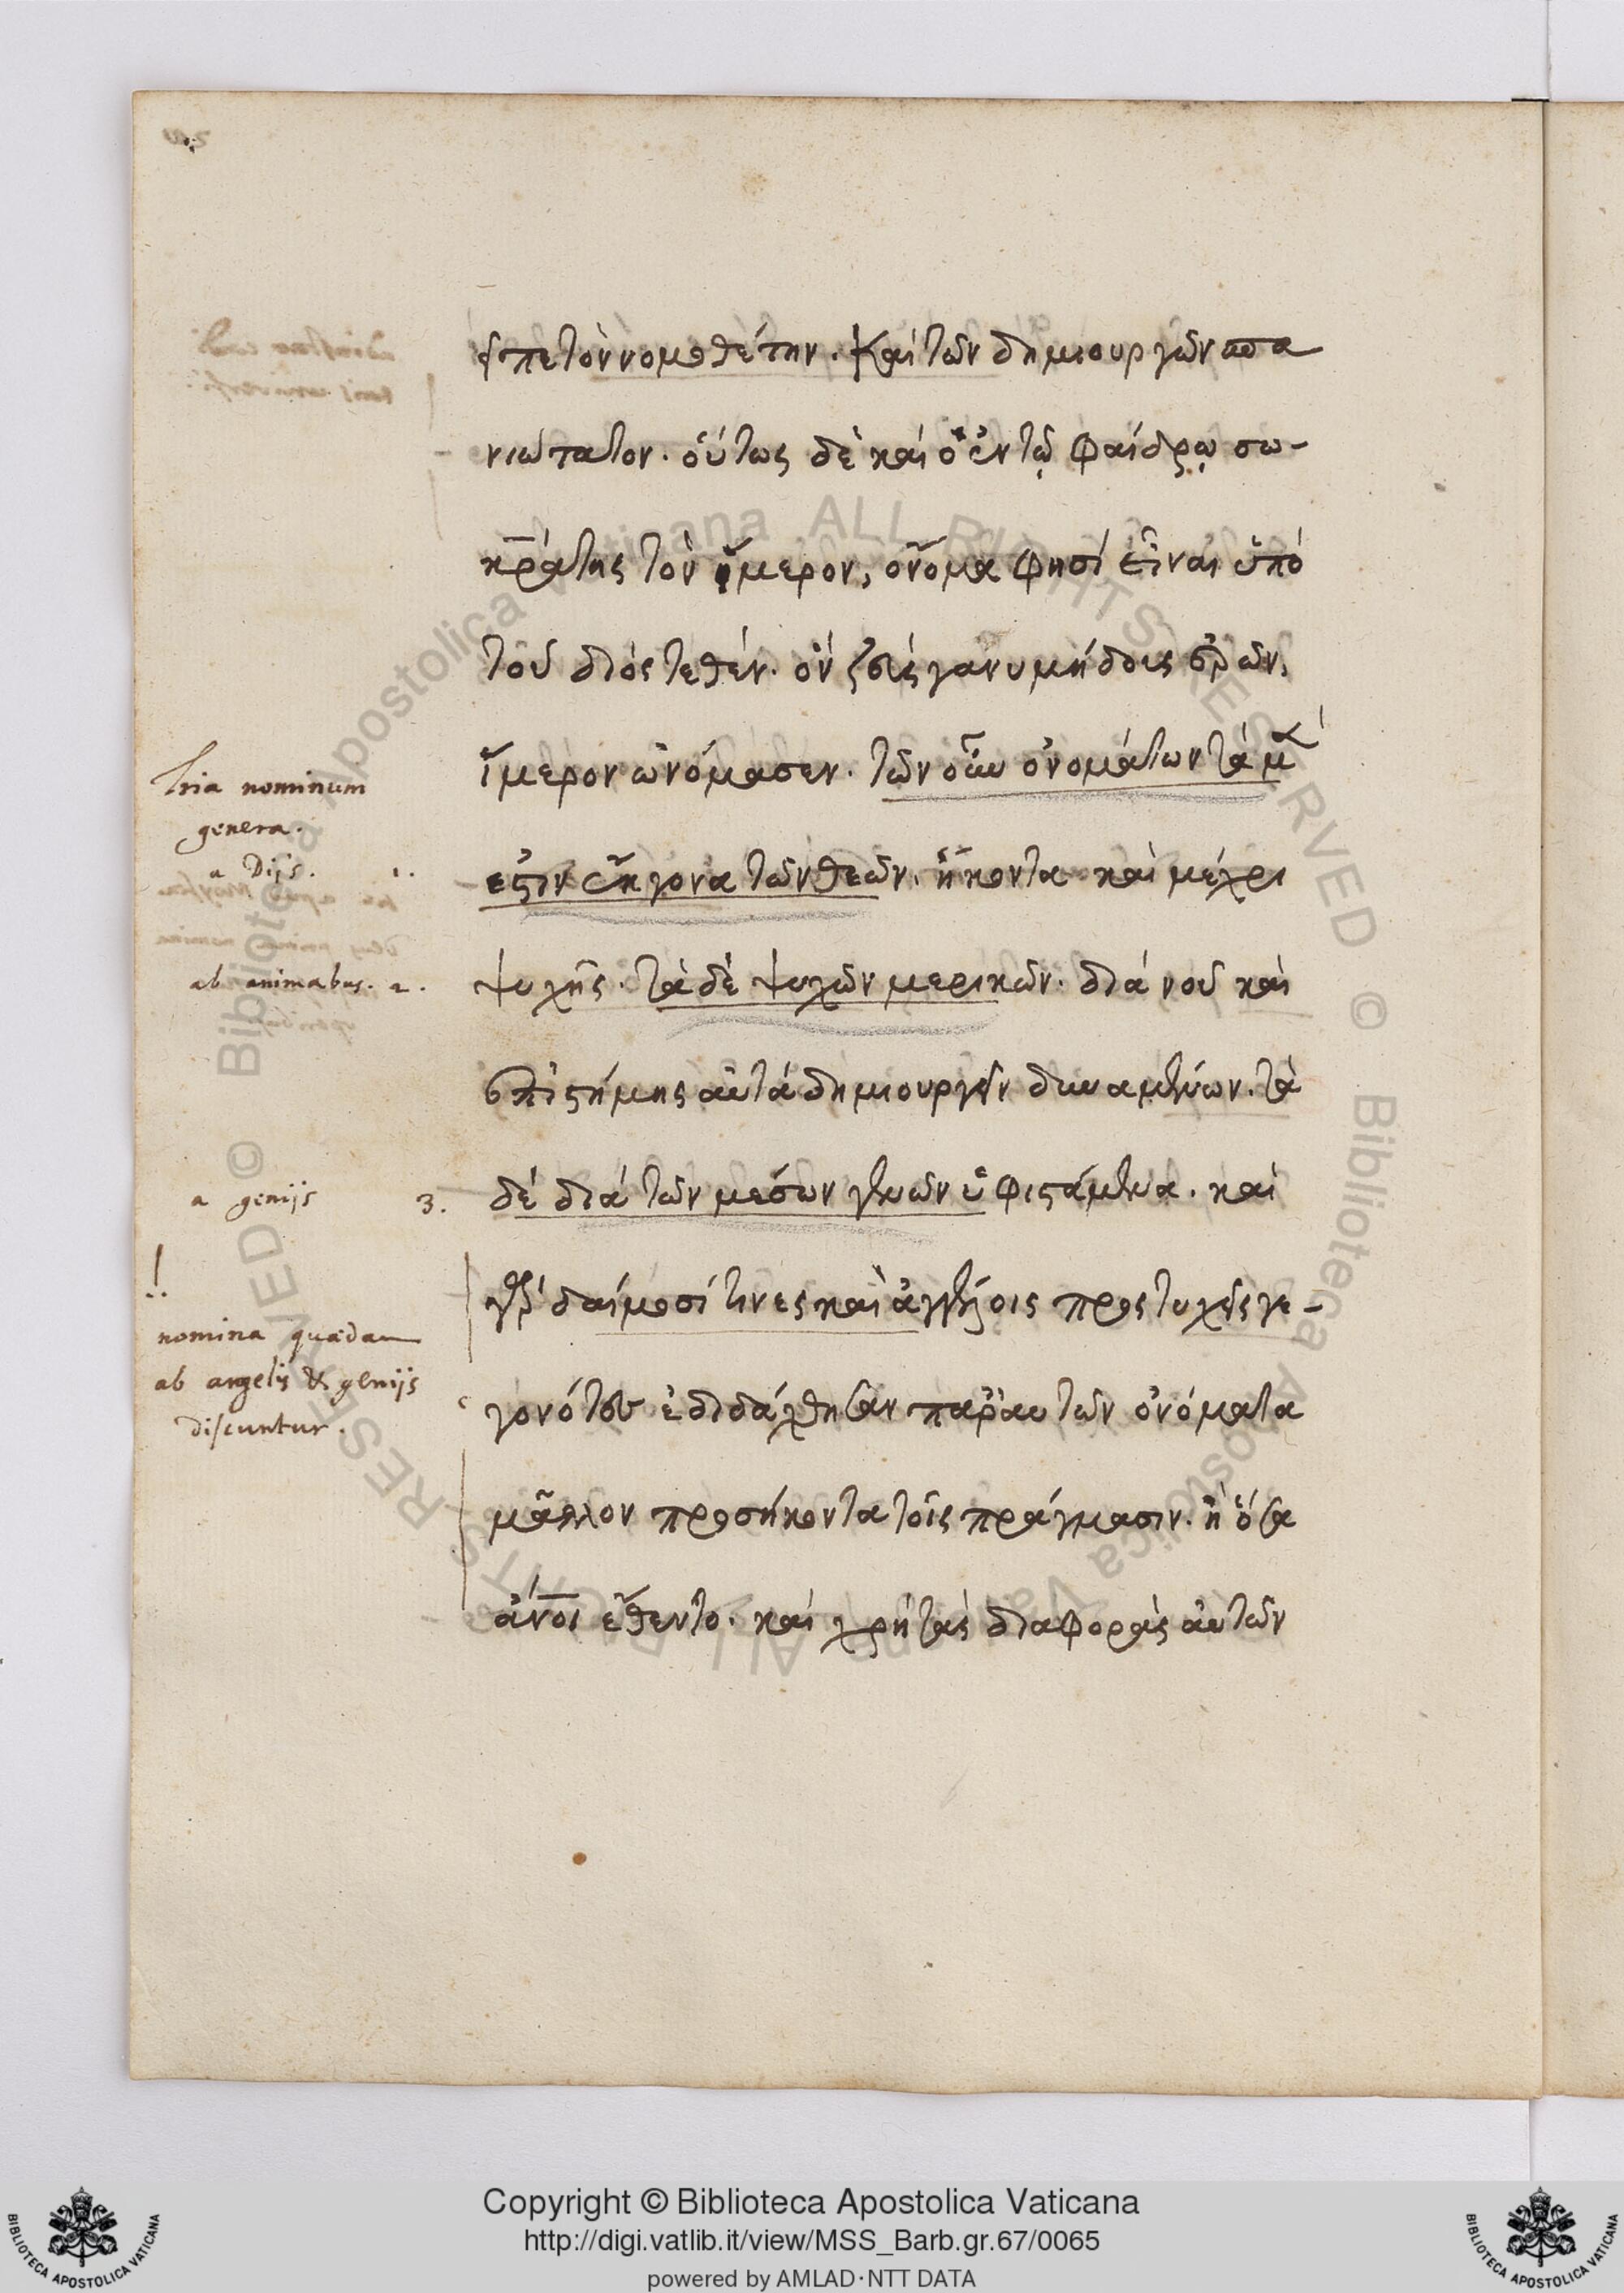 εἶπε τὸν νομοθέτην. καὶ τῶν δημιουργῶν σπα
νιώτατον. οὕτως δὲ καὶ ὁ ἐν τῷ φαίδρῳ σω-
κράτης τὸν ἵμερον, ὄνομα φησὶ εἶναι ὑπὸ
τοῦ διὸς τεθέν. ὃν ζεὺς γανυμήδους ἐρῶν,
ἵμερον ὠνόμασεν. τῶν οὖν ὀνομάτων τὰ μὲν
tria nominum
genera.
a Dijs. 1.
ἐστιν ἔκγονα τῶν θεῶν. ἥκοντα καὶ μέχρι
ab animabus. 2.
ψυχῆς. τὰ δὲ ψυχῶν μερικῶν. διὰ νοῦ καὶ
ἐπιστήμης αὐτὰ δημιουργεῖν δυναμένων. τὰ
a genijs 3.
δὲ διὰ τῶν μέσων γενῶν ὑφιστάμενα. καὶ
!
γὰρ δαίμοσί τινες καὶ ἀγγέλοις προστυχεῖς γε-
nomina quædam
ab angelis & genijs
discuntur.
γονότες ἐδιδάχθησαν παρ' αὐτῶν ὀνόματα
μᾶλλον προσήκοντα τοῖς πράγμασιν. ἢ ὅσα
ἄνοι ἔθεντο. καὶ χρὴ τὰς διαφορὰς αὐτῶν
Copyright © Biblioteca Apostolica Vaticana
http://digi.vatlib.it/view/MSS_Barb.gr.67/0065
powered by AMLAD·NTT DATA
BIBLIOTECA APOSTOLICA VATICANA
BIBLIOTECA APOSTOLICA VATICANA